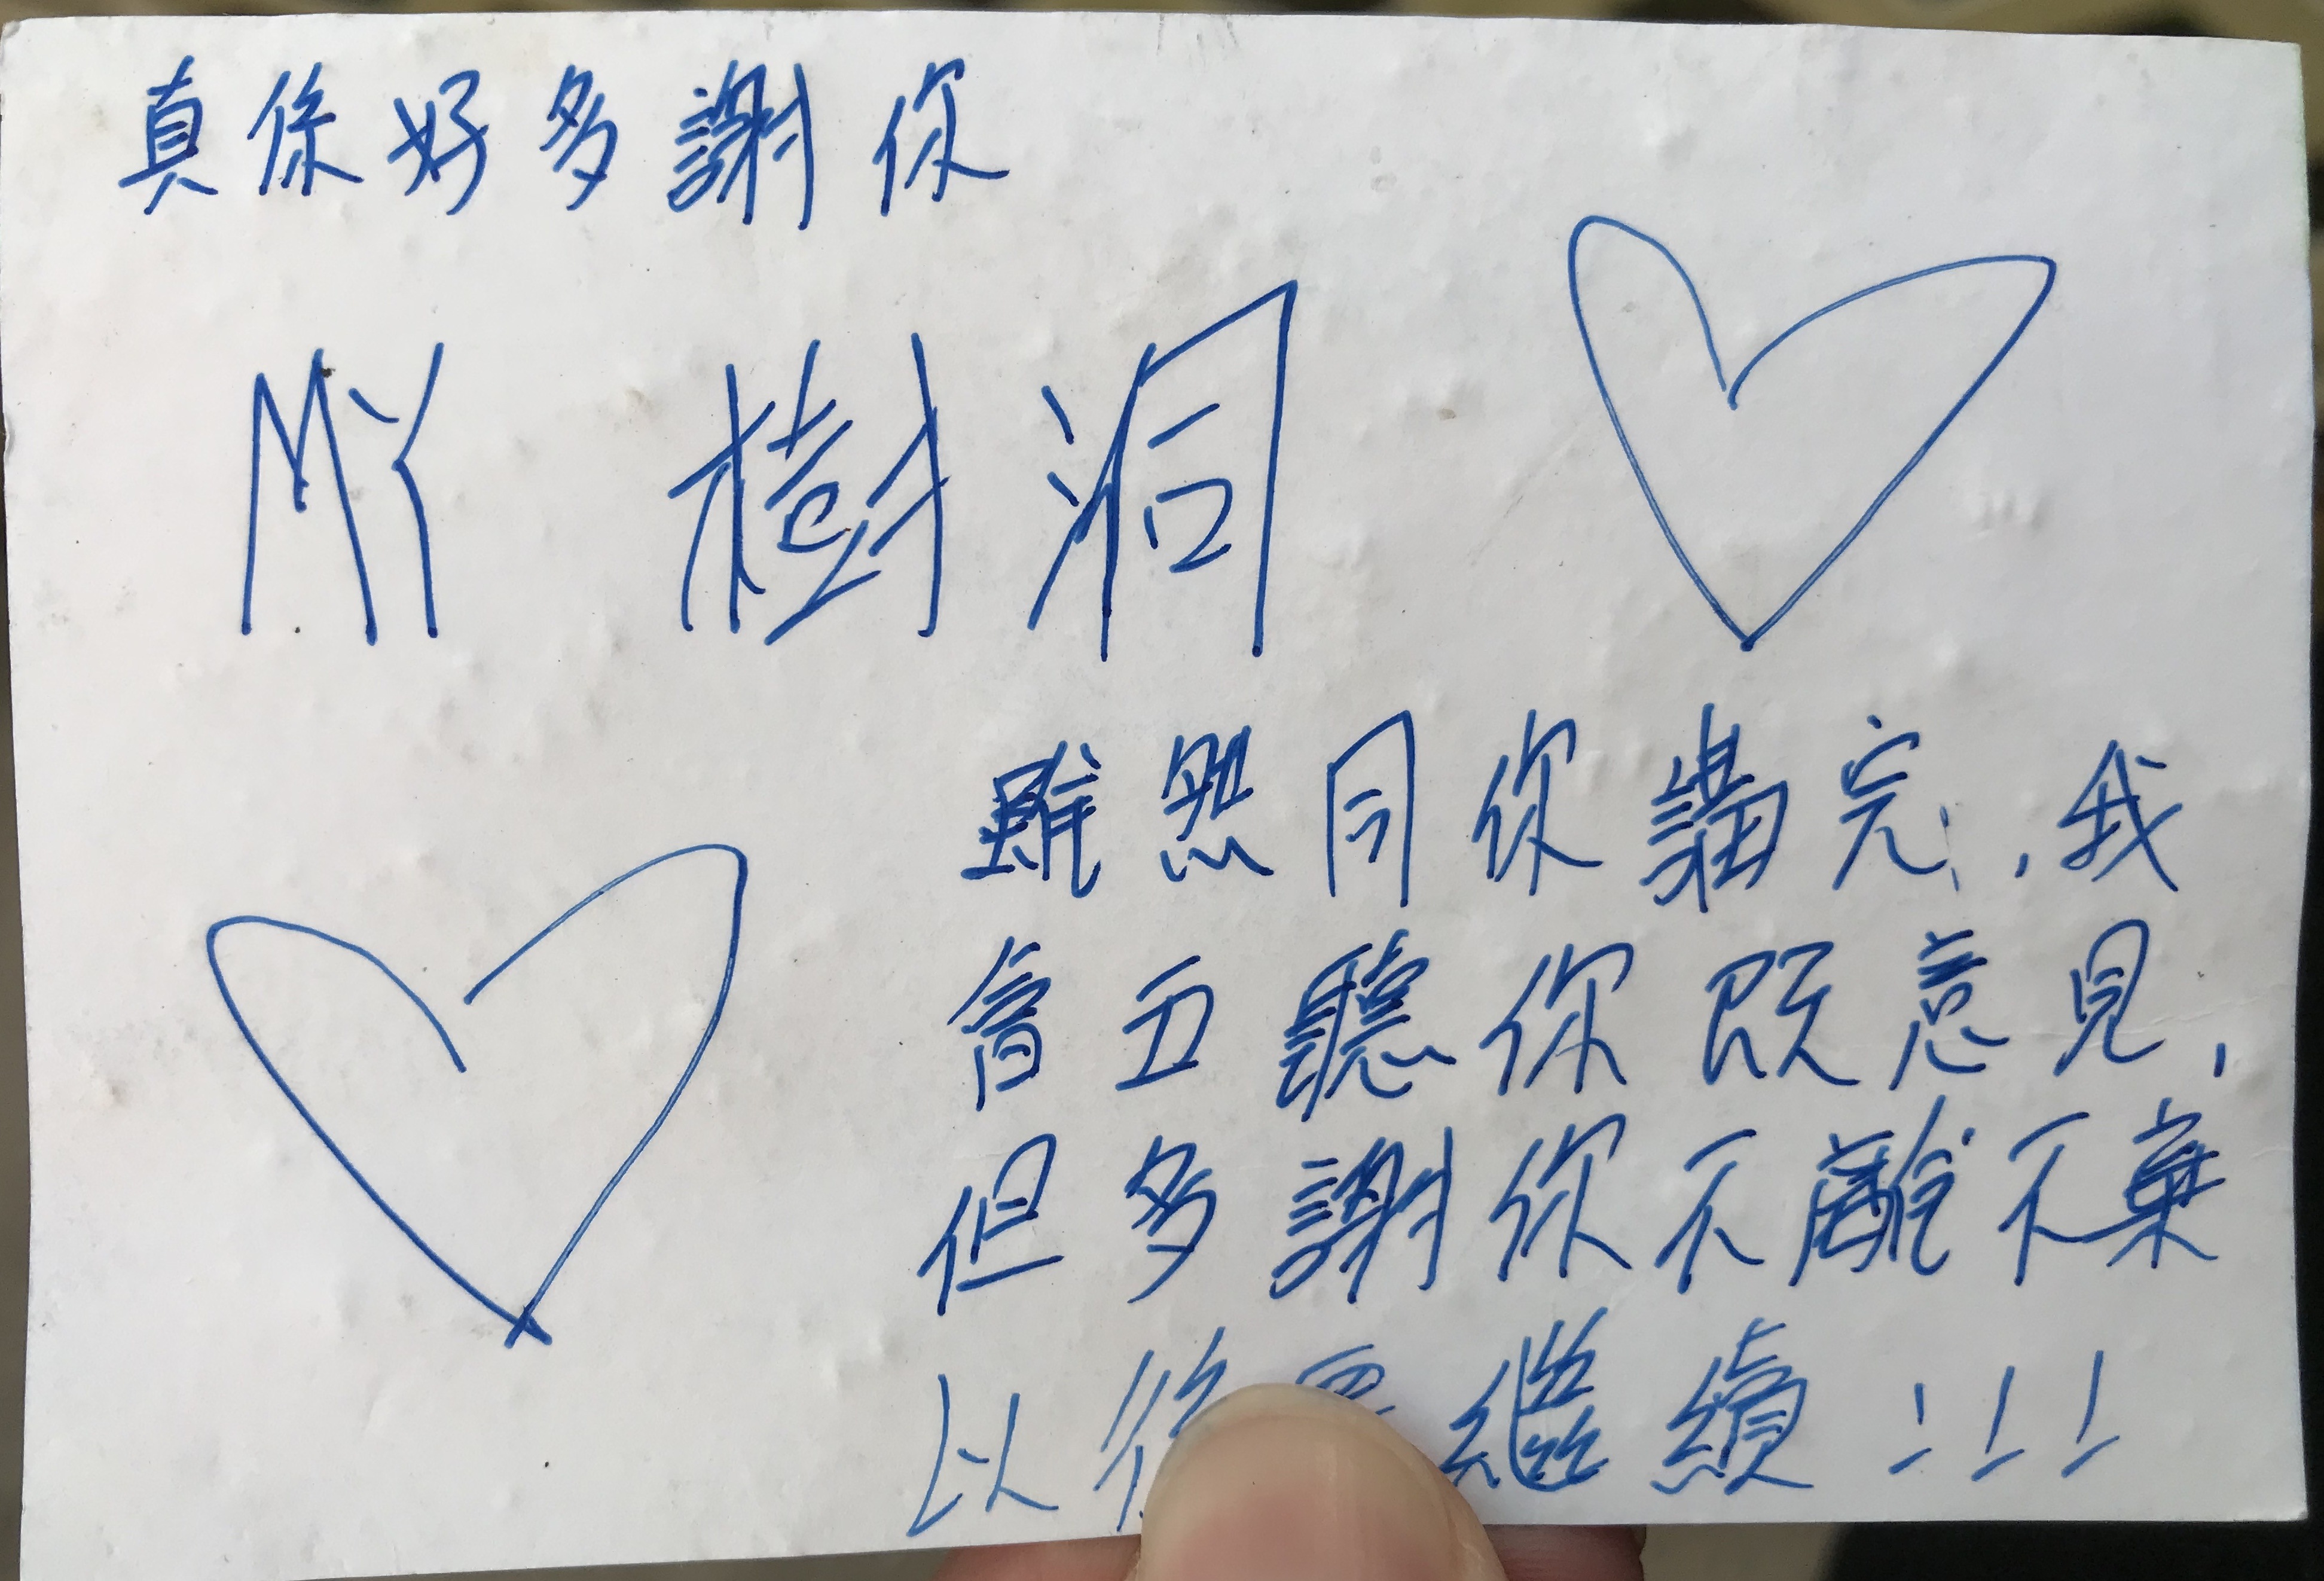 真係好多謝你
MY 樹洞
雖然同你講完,我
會五聽你既意見,
但多謝你不離不棄
以後要繼續!!!